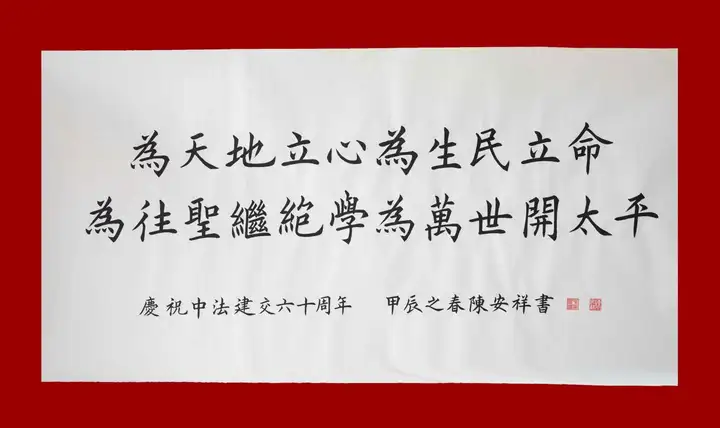 為天地立心為生民立命
為往聖繼絕學為萬世開太平
慶祝中法建交六十周年 甲辰之春陳安祥書